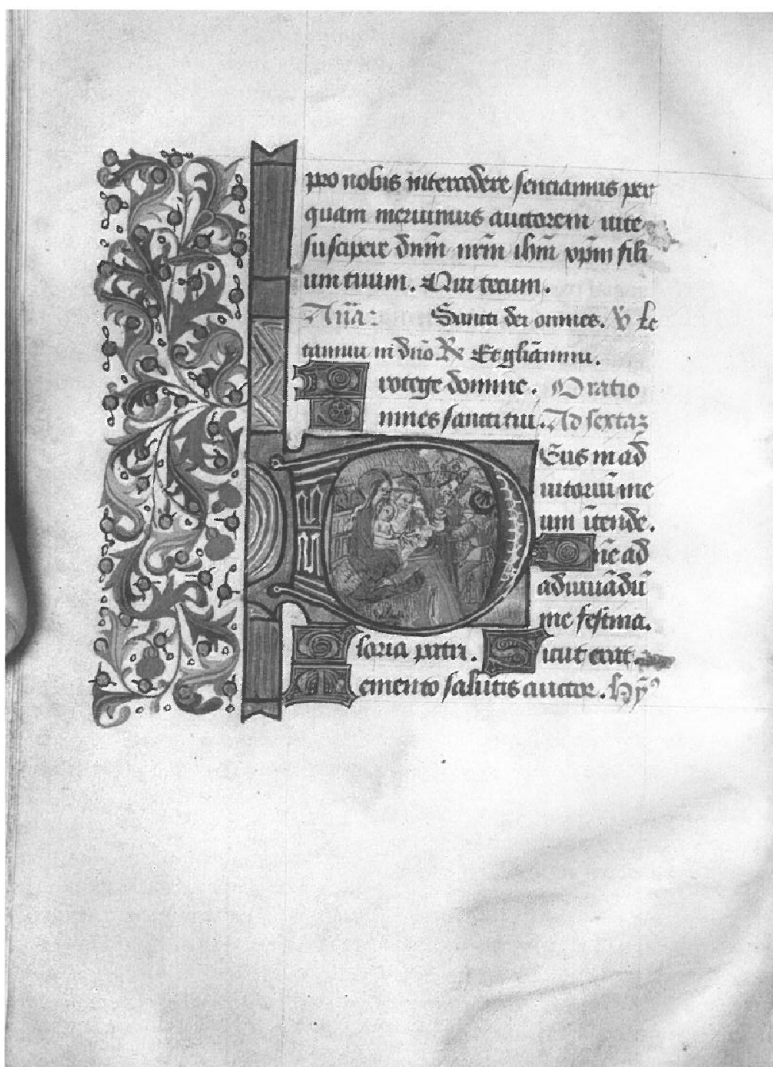 pro nobis intercedere senciamus per
quam meruimus auctorem uite
suscipere dn̄m nr̄m ihm̄ xpm̄ fili
um tuum. Qui tecum.
An̄a: Sancti dei omnes. V̸ Le
tamini in dn̄o R̸ Et gl̄iamini.
Protege domine. Oratio
Omnes sancti tui. Ad sextā
Deus in ad
iutoriū me
um ītende.
Dn̄e ad
adiuuādū
me festina.
Gloria patri. Sicut erat.
Memento salutis auctor. hy̅ˢ